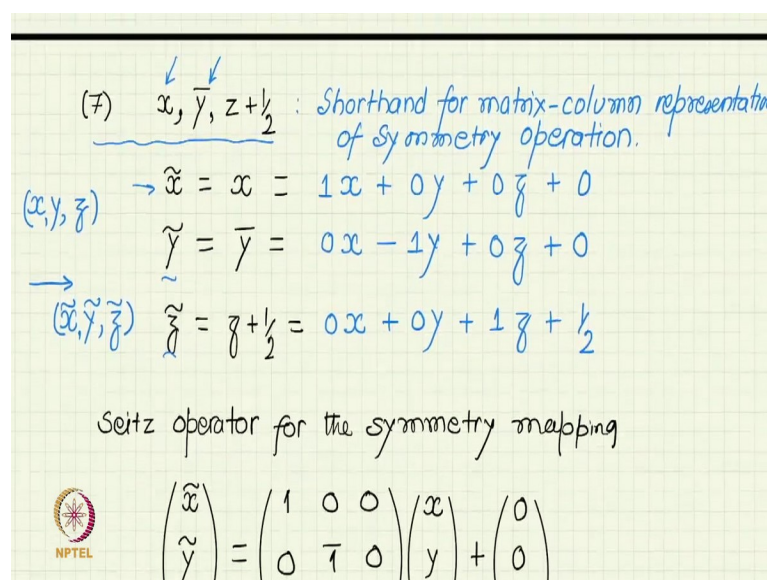 (7) x, ȳ, z+½ : Shorthand for matrix-column representatio
of symmetry operation.
→ x̃ = x = 1x + 0y + 0z + 0
(x, y, z)
ỹ = ȳ = 0x − 1y + 0z + 0
→
(x̃, ỹ, z̃) z̃ = z+½ = 0x + 0y + 1z + ½
Seitz operator for the symmetry mapping
x̃ 1 0 0 x 0
ỹ = 0 1̄ 0 y + 0
NPTEL